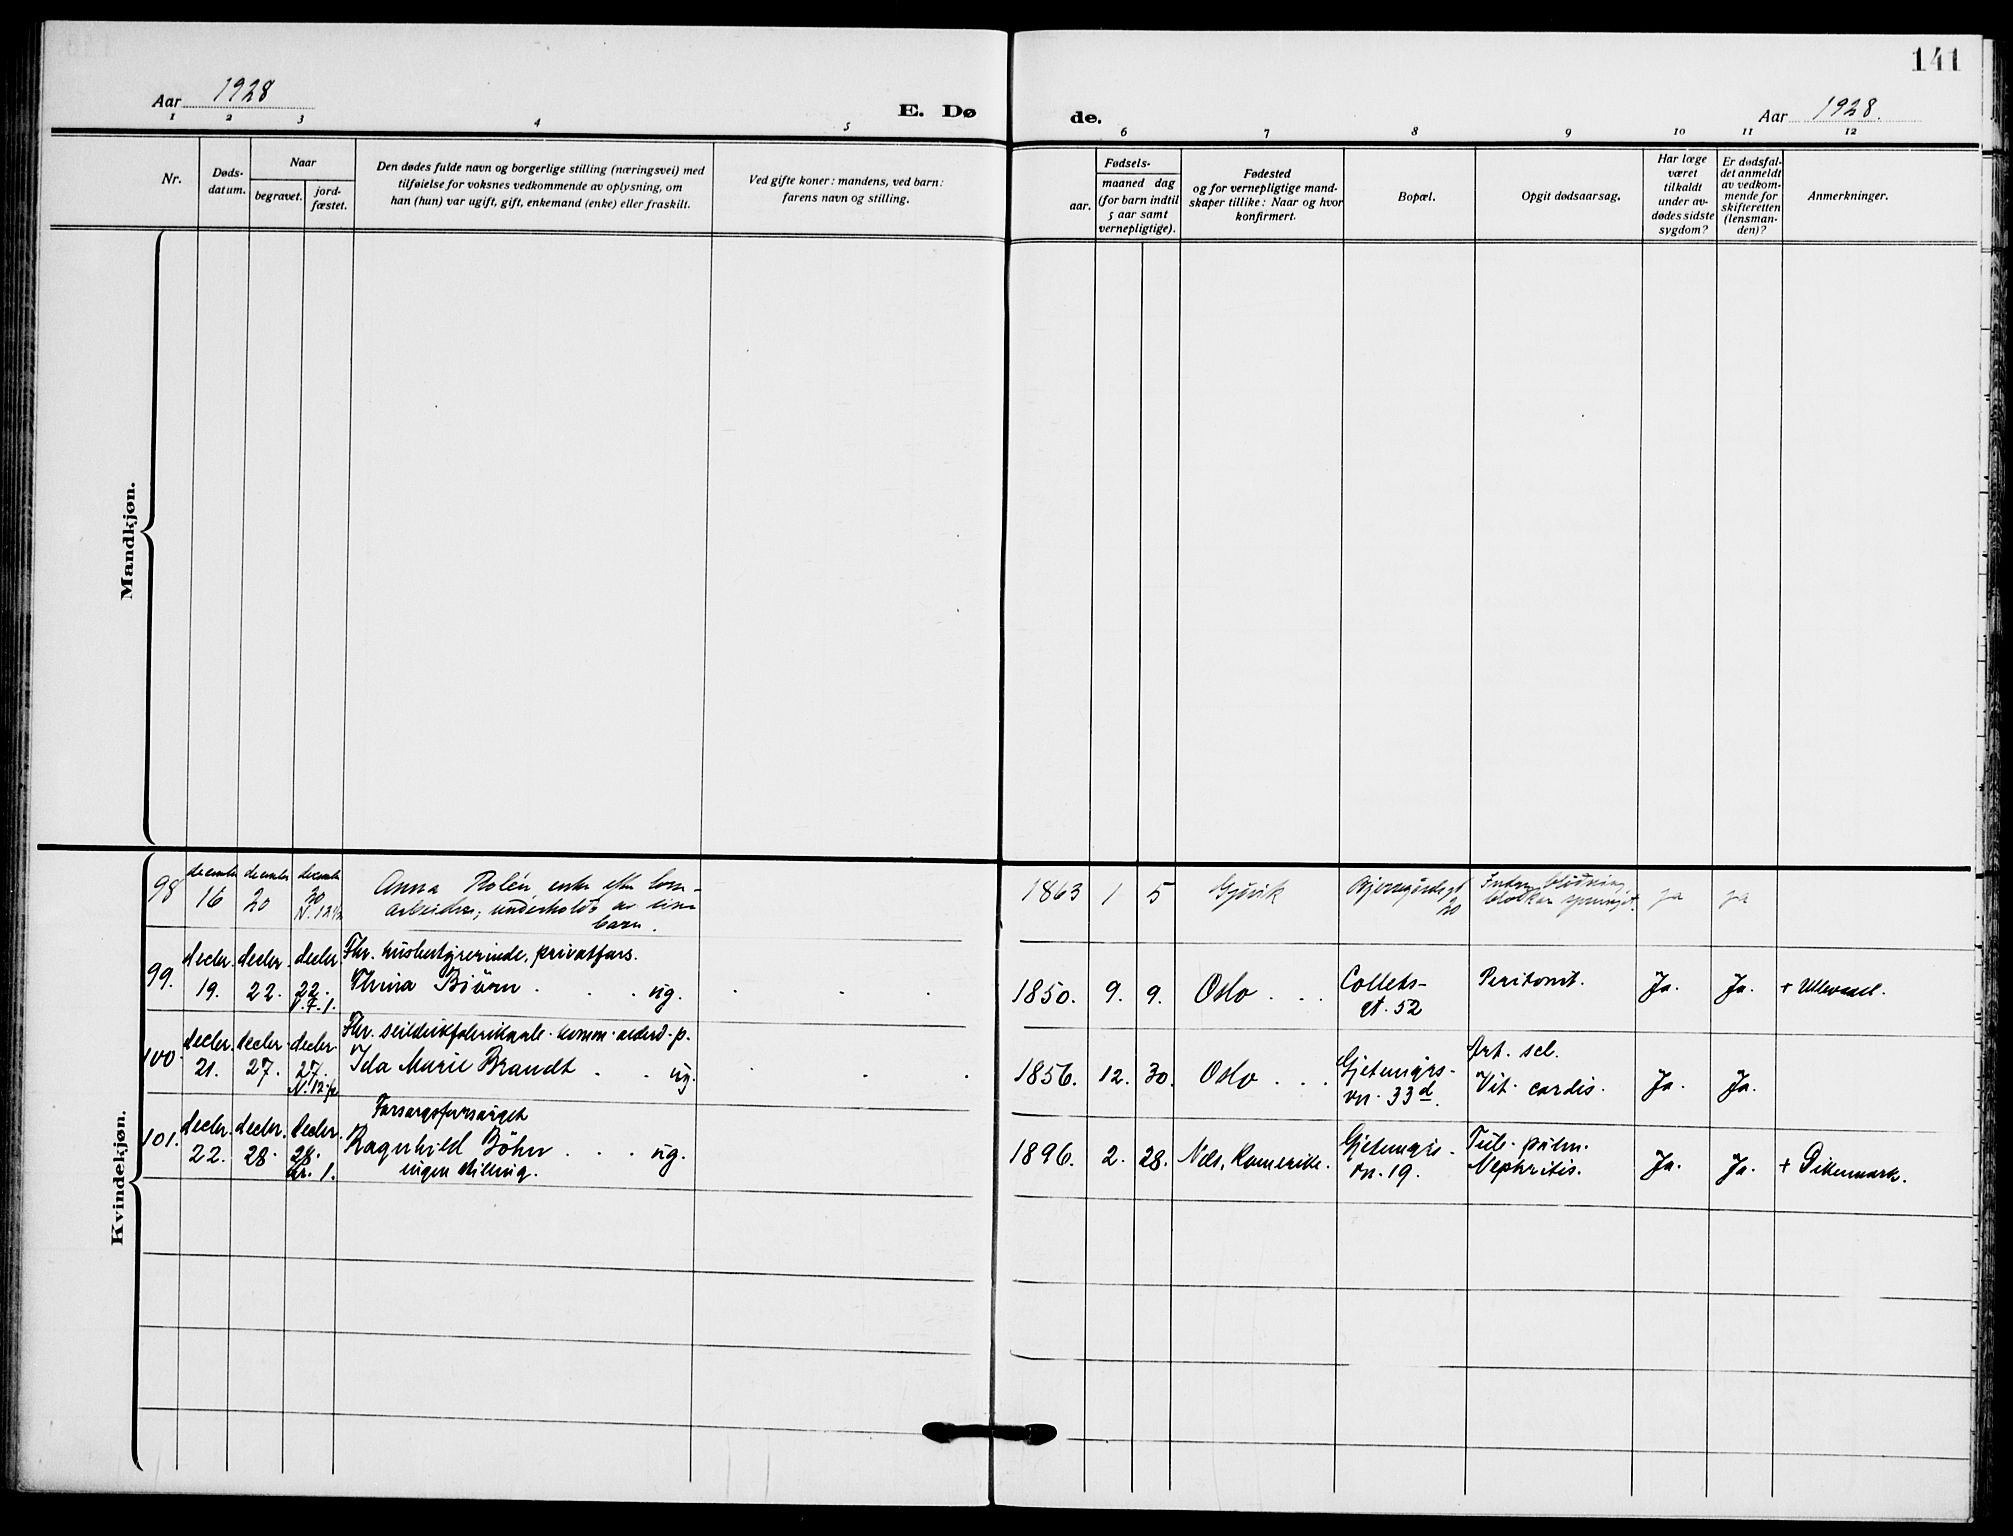 141
Aar 1928
E. Dø
de.
Aar 1928.
1 2 3 4 5 6 7 8 9 10 11 12
Nr.
Døds-
datum.
Naar
begravet.
jord-
fæstet.
Den dødes fulde navn og borgerlige stilling (næringsvei) med
tilføielse for voksnes vedkommende av oplysning, om
han (hun) var ugift, gift, enkemand (enke) eller fraskilt.
Ved gifte koner: mandens, ved barn:
farens navn og stilling.
Fødsels-
aar.
maaned dag
(for barn indtil
5 aar samt
vernepligtige).
Fødested
og for vernepligtige mand-
skaper tillike: Naar og hvor
konfirmert.
Bopæl.
Opgit dødsaarsag.
Har læge
været
tilkaldt
under av-
dødes sidste
sygdom?
Er dødsfal-
det anmeldt
av vedkom-
mende for
skifteretten
(lensman-
den)?
Anmerkninger.
Mandkjøn.
Kvindekjøn.
98 december 16 december 20 december 20
Anna Rolén, enke efter
Arbeider; underholdt av sine
barn.
1863 1 5 Gjøvik 20 Indre blødning, ja ja
99. decbr. 19. decbr. 22. decbr. 22. V. F. 1.
Fhr. husbestyrerinde, privatfors.
Thina Biørn . . . ug.
1850. 9. 9. Oslo . . . Collets-
gt. 52 Peritonit. Ja. Ja. + Ullevaal.
100. decbr. 21. decbr. 27. decbr. 27.
Fhr. komm. alderd. p.
Ida Marie Brandt . . ug.
1856. 12. 30. Oslo . . . Gjetemyrs-
vn. 33d. Art. scl.
Vit. cordis. Ja. Ja.
101. decbr. 22. decbr. 28. decbr. 28. Kr. 1.
Forsorgsforsørget
Ragnhild Böhn . . . ug.
ingen stilling.
1896. 2. 28. Nes, Romerike. Gjetemyrs-
vn. 19. Tub. pulm.
Nephritis. Ja. Ja. + Dikemark.